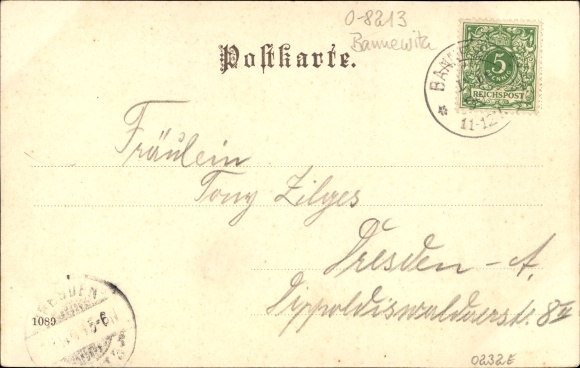 0-8213
Bannewitz
Postkarte.
5
REICHSPOST
11-12
Fräulein
Tony Zilges
Dresden - A.
Dippoldiswalderstr. 8 II
DRESDEN
1089
0232E